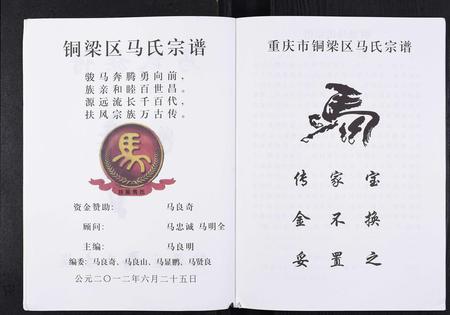 铜梁区马氏宗谱
骏马奔腾勇向前，
族亲和睦百世昌。
源远流长千百代，
扶风宗族万古传。
馬
资金赞助： 马良奇
顾问： 马忠诚 马明全
主编： 马良明
编委：马良奇、马良山、马显鹏、马贤良
公元二〇一二年六月二十五日
重庆市铜梁区马氏宗谱
馬
传家宝
金不换
妥置之